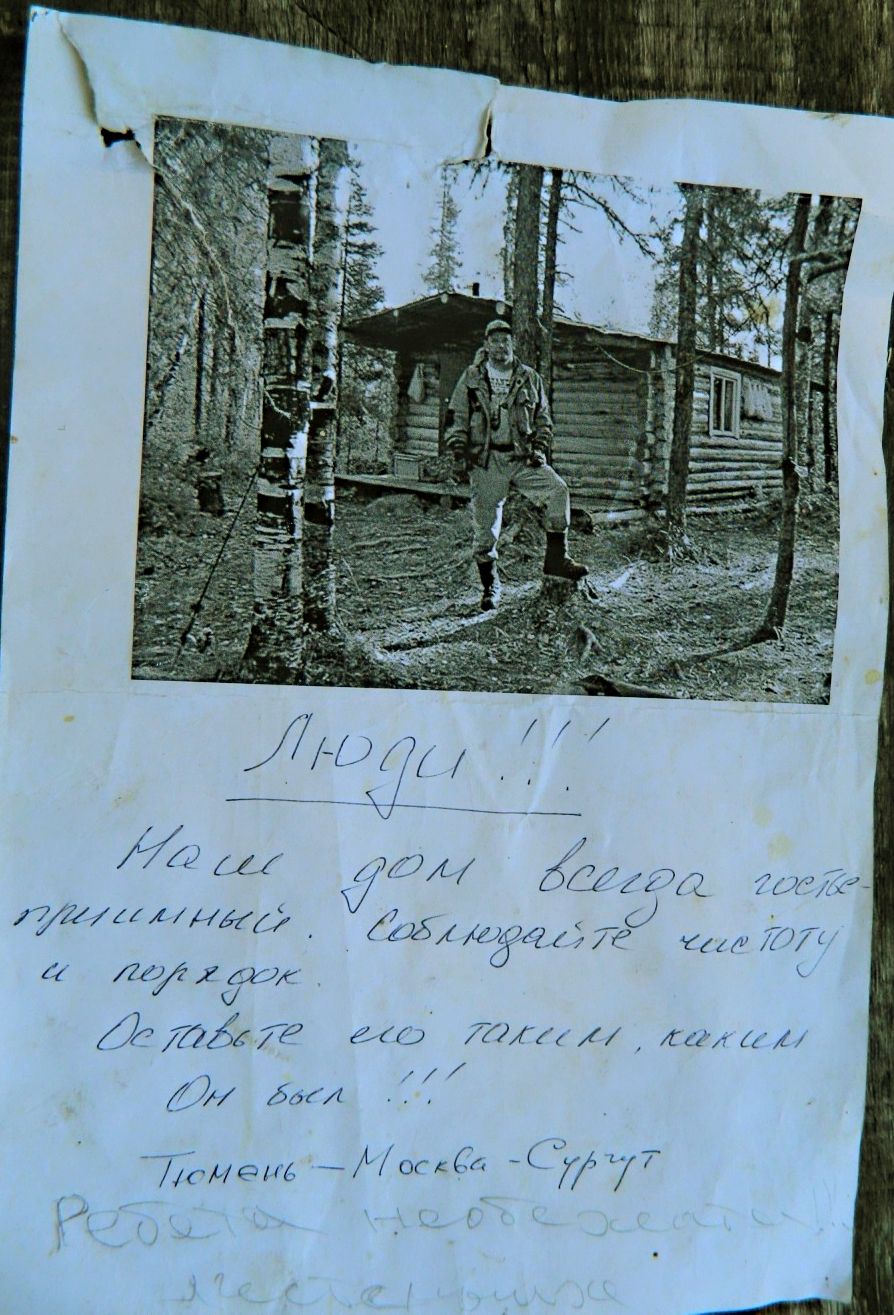 Люди!!!
Наш дом всегда госте-
приимный. Соблюдайте чистоту
и порядок.
Оставьте его таким, каким
Он был!!!
Тюмень – Москва - Сургут
Ребята !!!